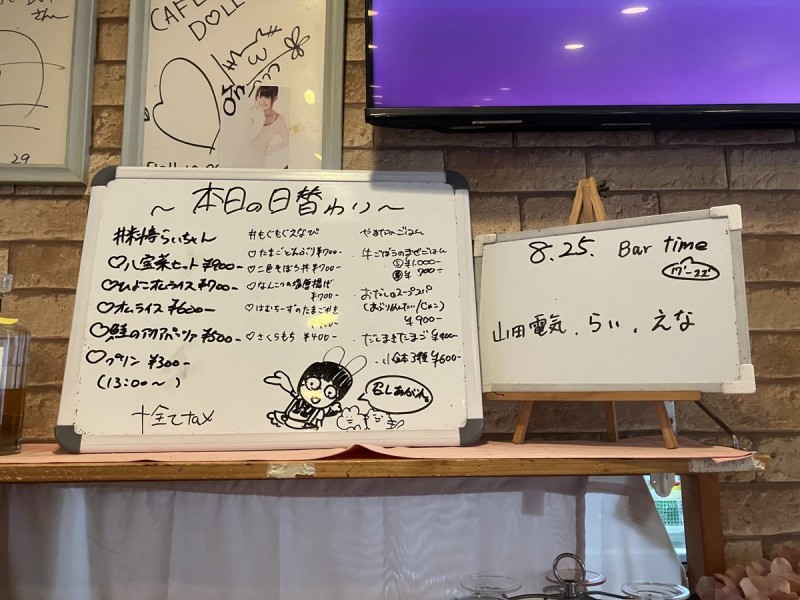 さん
29
CAFE
DOLL
～本日の日替わり～
#料時らぃちゃん
♡八宝菜セット ¥900-
♡ひよこオムライス¥700-
♡オムライス ¥600-
♡鮭のアクアパッツァ ¥500-
♡プリン ¥300-
(13:00～)
#もぐもぐえなぴ
♡たまごとんぶり¥700-
♡二色そぼろ丼¥700-
♡なんこつの塩唐揚げ
¥700-
♡はむちーずのたまごやき
♡さくらもち ¥400-
やまだのごはん
牛ごぼうのまぜごはん
¥1,000-
¥900-
おだしのスープスパ
¥900-
だしまきたまご
小鉢3種 ¥600-
+全てtax
召しあがれ。
8.25. Bar time
17-22
山田電気、らぃ、えな